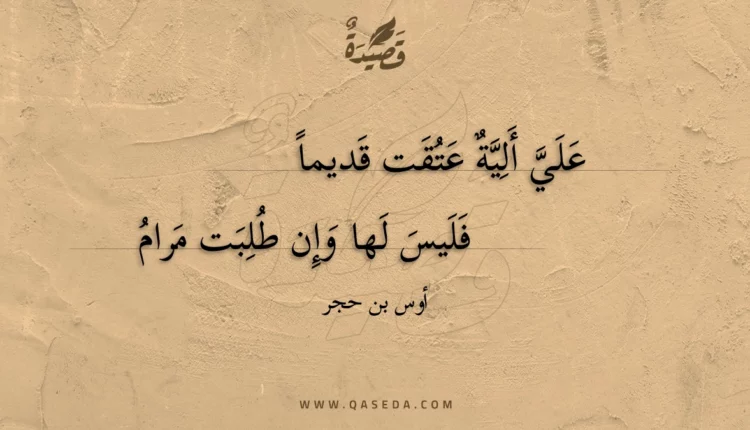 قَصِيْدَةٌ
عَلَيَّ أَلِيَّةٌ عَتُقَت قَديماً
فَلَيسَ لَها وَإِن طُلِبَت مَرامُ
أوس بن حجر
WWW.QASEDA.COM